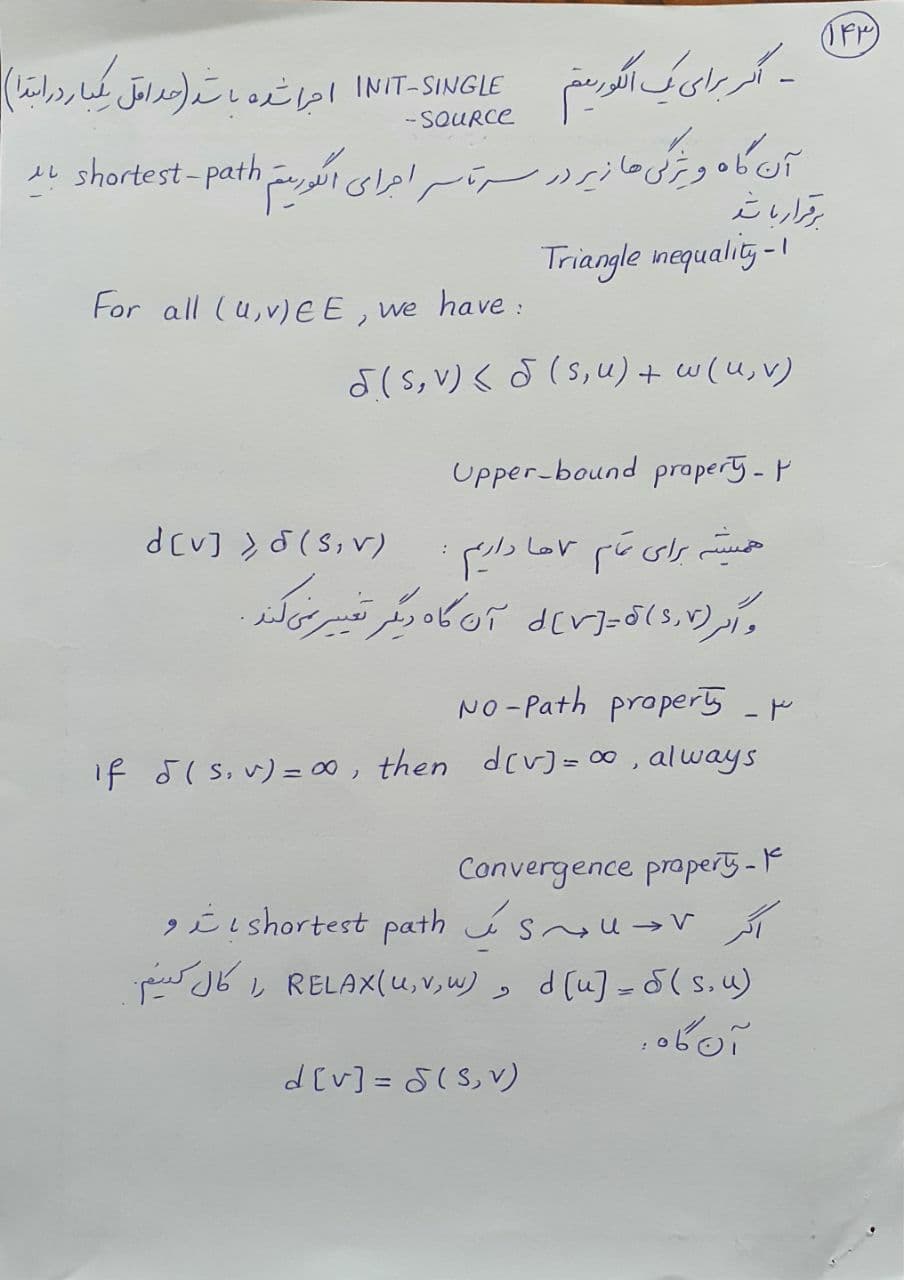 ۱۴۳
- اگر برای یک الگوریتم INIT-SINGLE-SOURCE اجرا شده باشد (حداقل یکبار در ابتدا)
آن گاه ویژگی ها زیر در سرتاسر اجرای الگوریتم shortest-path باید
برقرار باشد
۱- Triangle inequality
For all (u,v)∈E, we have:
δ(s,v) ≤ δ(s,u) + w(u,v)
۲- Upper-bound property
همیشه برای تمام v ها داریم: d[v] ≥ δ(s,v)
و اگر d[v]=δ(s,v) آن گاه دیگر تغییر نمی کند.
۳- No-Path property
if δ(s,v)=∞, then d[v]=∞, always
۴- Convergence property
اگر s⤳u→v یک shortest path باشد و
d[u]=δ(s,u) و RELAX(u,v,w) را کال کنیم.
آن گاه:
d[v] = δ(s,v)